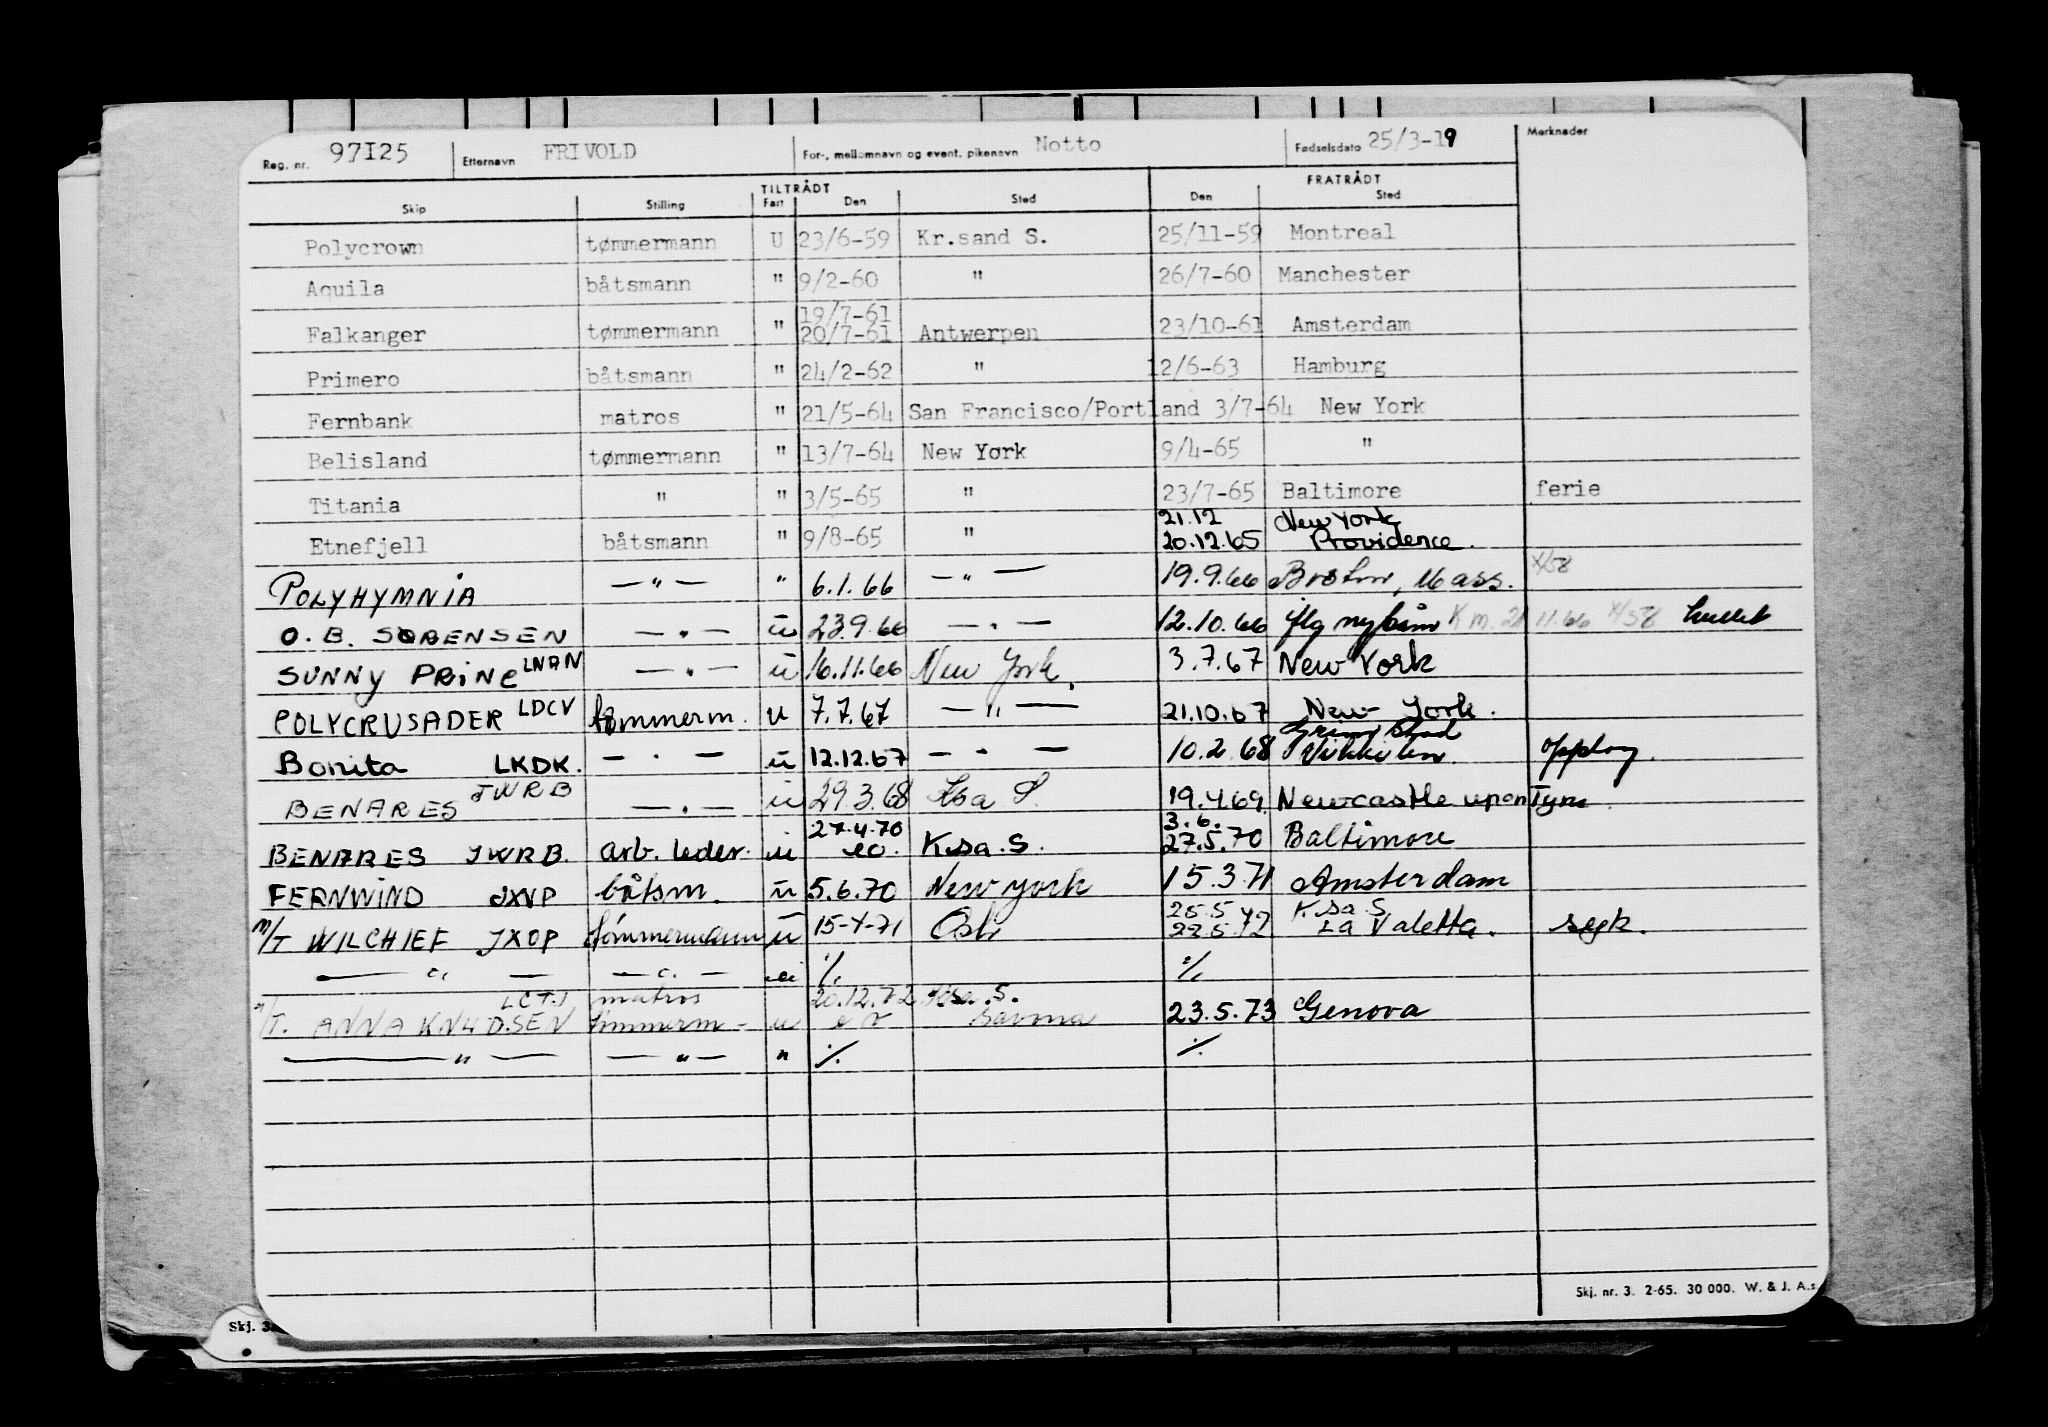 Reg. nr. 97I25 Etternavn FRIVOLD For-, mellomnavn og event. pikenavn Notto Fødselsdato 25/3-19 Merknader
TILTRÅDT FRATRÅDT
Skip Stilling Fart Den Sted Den Sted
Polycrown tømmermann U 23/6-59 Kr.sand S. 25/11-59 Montreal
Aquila båtsmann " 9/2-60 " 26/7-60 Manchester
19/7-61
Falkanger tømmermann " 20/7-61 Antwerpen 23/10-61 Amsterdam
Primero båtsmann " 24/2-62 " 12/6-63 Hamburg
Fernbank matros " 21/5-64 San Francisco/Portland 3/7-64 New York
Belisland tømmermann " 13/7-64 New York 9/4-65 "
Titania " " 3/5-65 " 23/7-65 Baltimore ferie
21.12 New York
Etnefjell båtsmann " 9/8-65 " 20.12.65 Providence.
POLYHYMNIA — " — " 6.1.66 — " — 19.9.66 Boston, Mass. x/58
O. B. SØRENSEN — " — u 23.9.66 — " — 12.10.66 flg 21.11.66 x/58
SUNNY PRINC LNAN — " — u 16.11.66 New York. 3.7.67 New York
POLYCRUSADER LDCV tømmerm. u 7.7.67 — " — 21.10.67 New York.
Grimstad
Bonita LKDK. — " — u 12.12.67 — " — 10.2.68 Vikkilen. opplag.
BENARES JWRB — " — u 29.3.68 Ksa S. 19.4.69 Newcastle upon Tyne.
27.4.70 3.6.
BENARES JWRB. arb. leder. u eo. K.sa. S. 27.5.70 Baltimore
FERNWIND JXVP båtsm. u 5.6.70 New York 15.3.71 Amsterdam
25.5 K.sa S
M/T WILCHIEF JXOP tømmermann u 15-4-71 Oslo 22.5.72 La Valetta. syk.
— " — — " — u ./. ./.
LCTJ matros 20.12.72 K.sa. S.
M/T. ANNA KNUDSEN tømmerm - u Savona 23.5.73 Genova
— " — — " — " ./. ./.
Skj. nr. 3. 2-65. 30 000. W. & J. A.s
Skj. 3